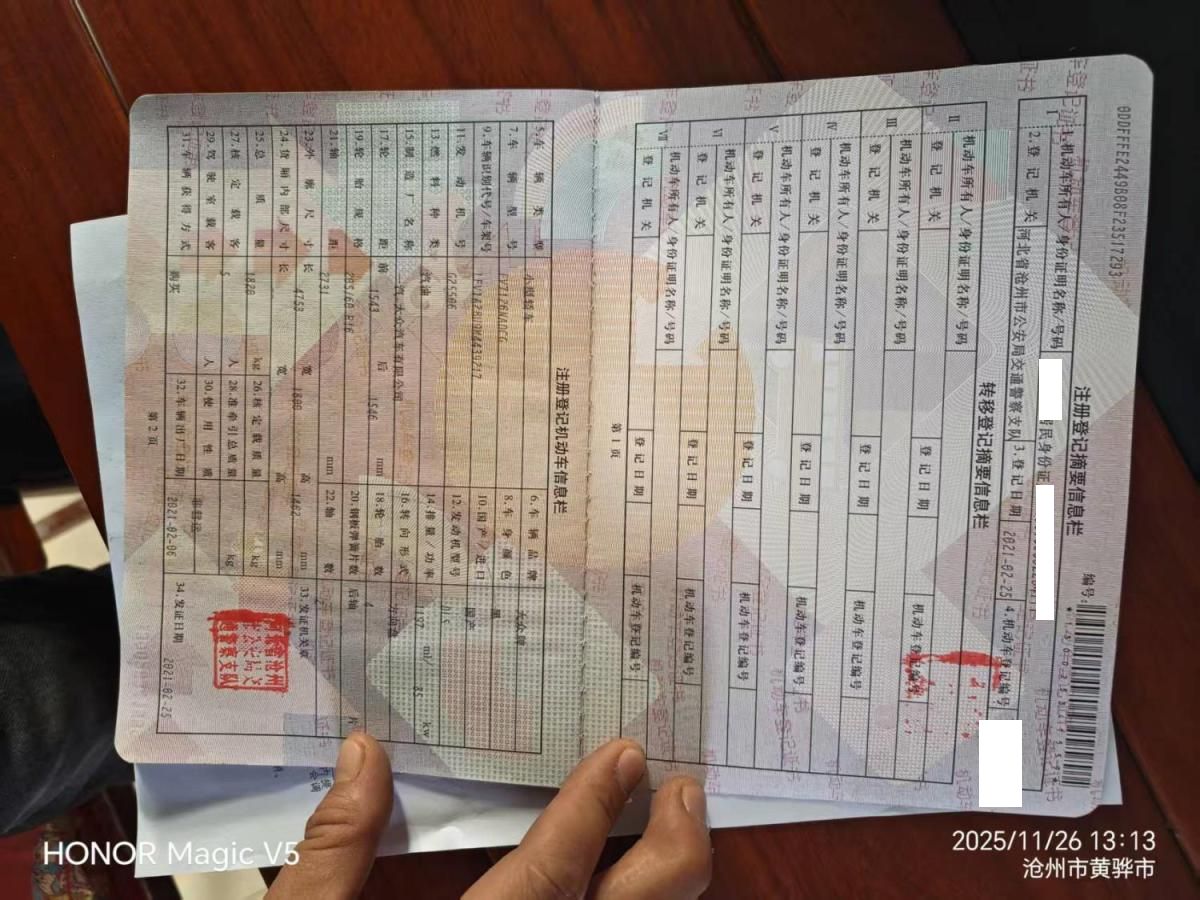 0DDFFFE2449B08F2351729
注册登记摘要信息栏
编号:
I
1.机动车所有人/身份证明名称/号码
民身份证
2.登记机关 河北省沧州市公安局交通警察支队 3.登记日期 2021-02-25 4.机动车登记编号
转移登记摘要信息栏
II
机动车所有人/身份证明名称/号码
登记机关 登记日期 机动车登记编号
III
机动车所有人/身份证明名称/号码
登记机关 登记日期 机动车登记编号
IV
机动车所有人/身份证明名称/号码
登记机关 登记日期 机动车登记编号
V
机动车所有人/身份证明名称/号码
登记机关 登记日期 机动车登记编号
VI
机动车所有人/身份证明名称/号码
登记机关 登记日期 机动车登记编号
VII
机动车所有人/身份证明名称/号码
登记机关 登记日期 机动车登记编号
第1页
注册登记机动车信息栏
5.车辆类型 小型轿车 6.车辆品牌 大众牌
7.车辆型号 8.车身颜色 黑
9.车辆识别代号/车架号 10.国产/进口 国产
11.发动机号 12.发动机型号
13.燃料种类 汽油 14.排量/功率 ml/ kw
15.制造厂名称 一汽-大众汽车有限公司 16.转向形式 方向盘
17.轮距 前 1543 后 1546 mm 18.轮胎数 4
19.轮胎规格 205/60 R16 20.钢板弹簧片数 后轴 片
21.轴距 2731 mm 22.轴数 2
23.外廓尺寸 长 4753 宽 1800 高 1462 mm 33.发证机关章
24.货厢内部尺寸 长 宽 高 mm
25.总质量 1820 kg 26.核定载质量 kg
27.核定载客 5 人 28.准牵引总质量 kg
29.驾驶室载客 人 30.使用性质 非营运
31.车辆获得方式 购买 32.车辆出厂日期 2021-02-06 34.发证日期 2021-02-25
第2页
HONOR Magic V5
2025/11/26 13:13
沧州市黄骅市